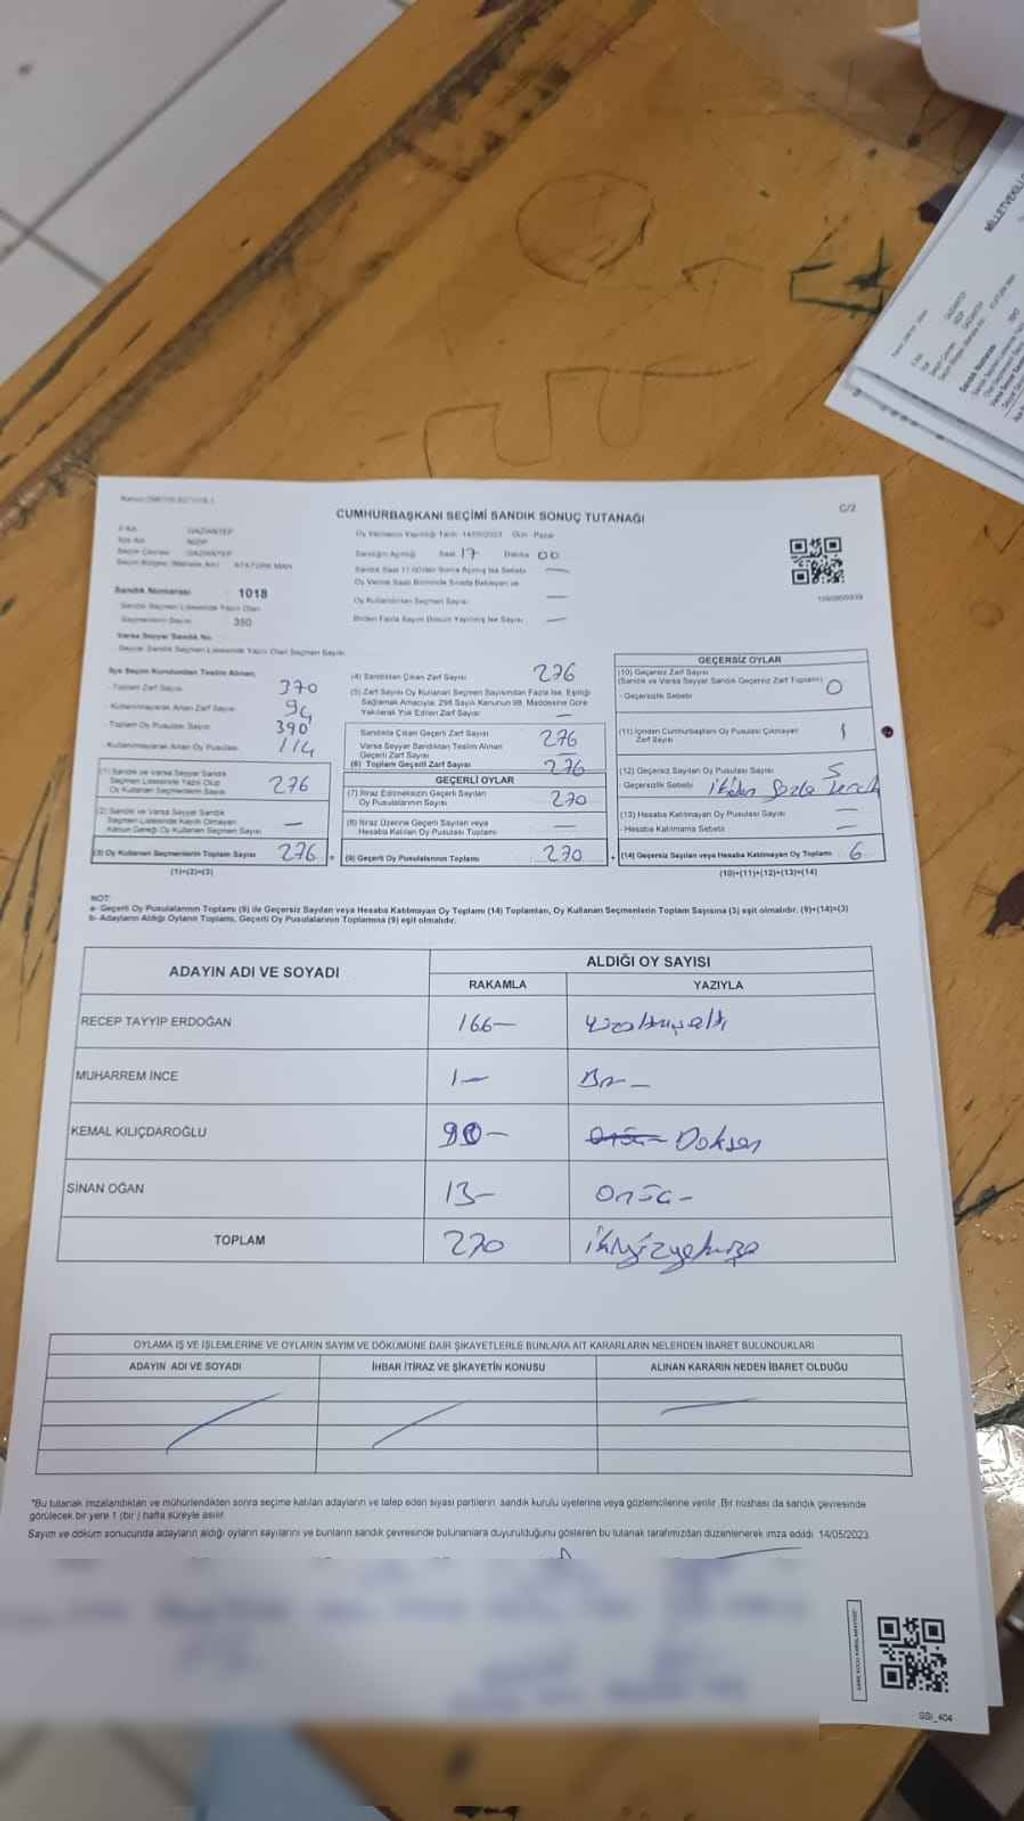 CUMHURBAŞKANI SEÇİMİ SANDIK SONUÇ TUTANAĞI
C/2
Oy Vermenin Yapıldığı Tarih: 14/05/2023 Gün: Pazar
İli Adı GAZİANTEP
İlçe Adı NİZİP
Seçim Çevresi GAZİANTEP
ATATÜRK MAH.
Sandığın Açılışı Saat 17 Dakika 00
Oy Verme Saati Bitiminde Sırada Bekleyen ve
Oy Kullandırılan Seçmen Sayısı —
Birden Fazla Sayım Döküm Yapılmış İse Sayısı —
Sandık Numarası 1018
Sandık Seçmen Listesinde Yazılı Olan
Seçmenlerin Sayısı 350
Varsa Seyyar Sandık No
Seyyar Sandık Seçmen Listesinde Yazılı Olan Seçmen Sayısı
İlçe Seçim Kurulundan Teslim Alınan;
- Toplam Zarf Sayısı 370
- Kullanılmayarak Artan Zarf Sayısı 94
- Toplam Oy Pusulası Sayısı 390
- Kullanılmayarak Artan Oy Pusulası 114
(1) Sandık ve Varsa Seyyar Sandık
Seçmen Listesinde Yazılı Olup
Oy Kullanan Seçmenlerin Sayısı 276
(2) Sandık ve Varsa Seyyar Sandık
Seçmen Listesinde Kaydı Olmayan
Kanun Gereği Oy Kullanan Seçmen Sayısı —
(3) Oy Kullanan Seçmenlerin Toplam Sayısı 276
(1)+(2)=(3)
(4) Sandıktan Çıkan Zarf Sayısı 276
(5) Zarf Sayısı Oy Kullanan Seçmen Sayısından Fazla İse, Eşitliği
Sağlamak Amacıyla; 298 Sayılı Kanunun 98. Maddesine Göre
Yakılarak Yok Edilen Zarf Sayısı —
Sandıkta Çıkan Geçerli Zarf Sayısı 276
Varsa Seyyar Sandıktan Teslim Alınan
Geçerli Zarf Sayısı —
(6) Toplam Geçerli Zarf Sayısı 276
GEÇERLİ OYLAR
(7) İtiraz Edilmeksizin Geçerli Sayılan
Oy Pusulalarının Sayısı 270
(8) İtiraz Üzerine Geçerli Sayılan veya
Hesaba Katılan Oy Pusulası Toplamı —
(9) Geçerli Oy Pusulalarının Toplamı 270
GEÇERSİZ OYLAR
(10) Geçersiz Zarf Sayısı
(Sandık ve Varsa Seyyar Sandık Geçersiz Zarf Toplamı) 0
- Geçersizlik Sebebi
(11) İçinden Cumhurbaşkanı Oy Pusulası Çıkmayan
Zarf Sayısı 1
(12) Geçersiz Sayılan Oy Pusulası Sayısı 5
- Geçersizlik Sebebi ikiden fazla tercih
(13) Hesaba Katılmayan Oy Pusulası Sayısı —
- Hesaba Katılmama Sebebi —
(14) Geçersiz Sayılan veya Hesaba Katılmayan Oy Toplamı 6
(10)+(11)+(12)+(13)=(14)
NOT:
a- Geçerli Oy Pusulalarının Toplamı (9) ile Geçersiz Sayılan veya Hesaba Katılmayan Oy Toplamı (14) Toplamları, Oy Kullanan Seçmenlerin Toplam Sayısına (3) eşit olmalıdır. (9)+(14)=(3)
b- Adayların Aldığı Oyların Toplamı, Geçerli Oy Pusulalarının Toplamına (9) eşit olmalıdır.
ADAYIN ADI VE SOYADI
ALDIĞI OY SAYISI
RAKAMLA YAZIYLA
RECEP TAYYİP ERDOĞAN 166— Yüzaltmışaltı
MUHARREM İNCE 1— Bir —
KEMAL KILIÇDAROĞLU 90— Onüç — Doksan
SİNAN OĞAN 13— Onüç —
TOPLAM 270 ikiyüzyetmiş
OYLAMA İŞ VE İŞLEMLERİNE VE OYLARIN SAYIM VE DÖKÜMÜNE DAİR ŞİKAYETLERLE BUNLARA AİT KARARLARIN NELERDEN İBARET BULUNDUKLARI
ADAYIN ADI VE SOYADI İHBAR İTİRAZ VE ŞİKAYETİN KONUSU ALINAN KARARIN NEDEN İBARET OLDUĞU
*Bu tutanak imzalandıktan ve mühürlendikten sonra seçime katılan adayların ve talep eden siyasi partilerin sandık kurulu üyelerine veya gözlemcilerine verilir. Bir nüshası da sandık çevresinde
görülecek bir yere 1 (bir) hafta süreyle asılır.
Sayım ve döküm sonucunda adayların aldığı oyların sayılarını ve bunların sandık çevresinde bulunanlara duyurulduğunu gösteren bu tutanak tarafımızdan düzenlenerek imza edildi. 14/05/2023
GSI_404
MİLLETVEKİLİ
Sandık Numarası